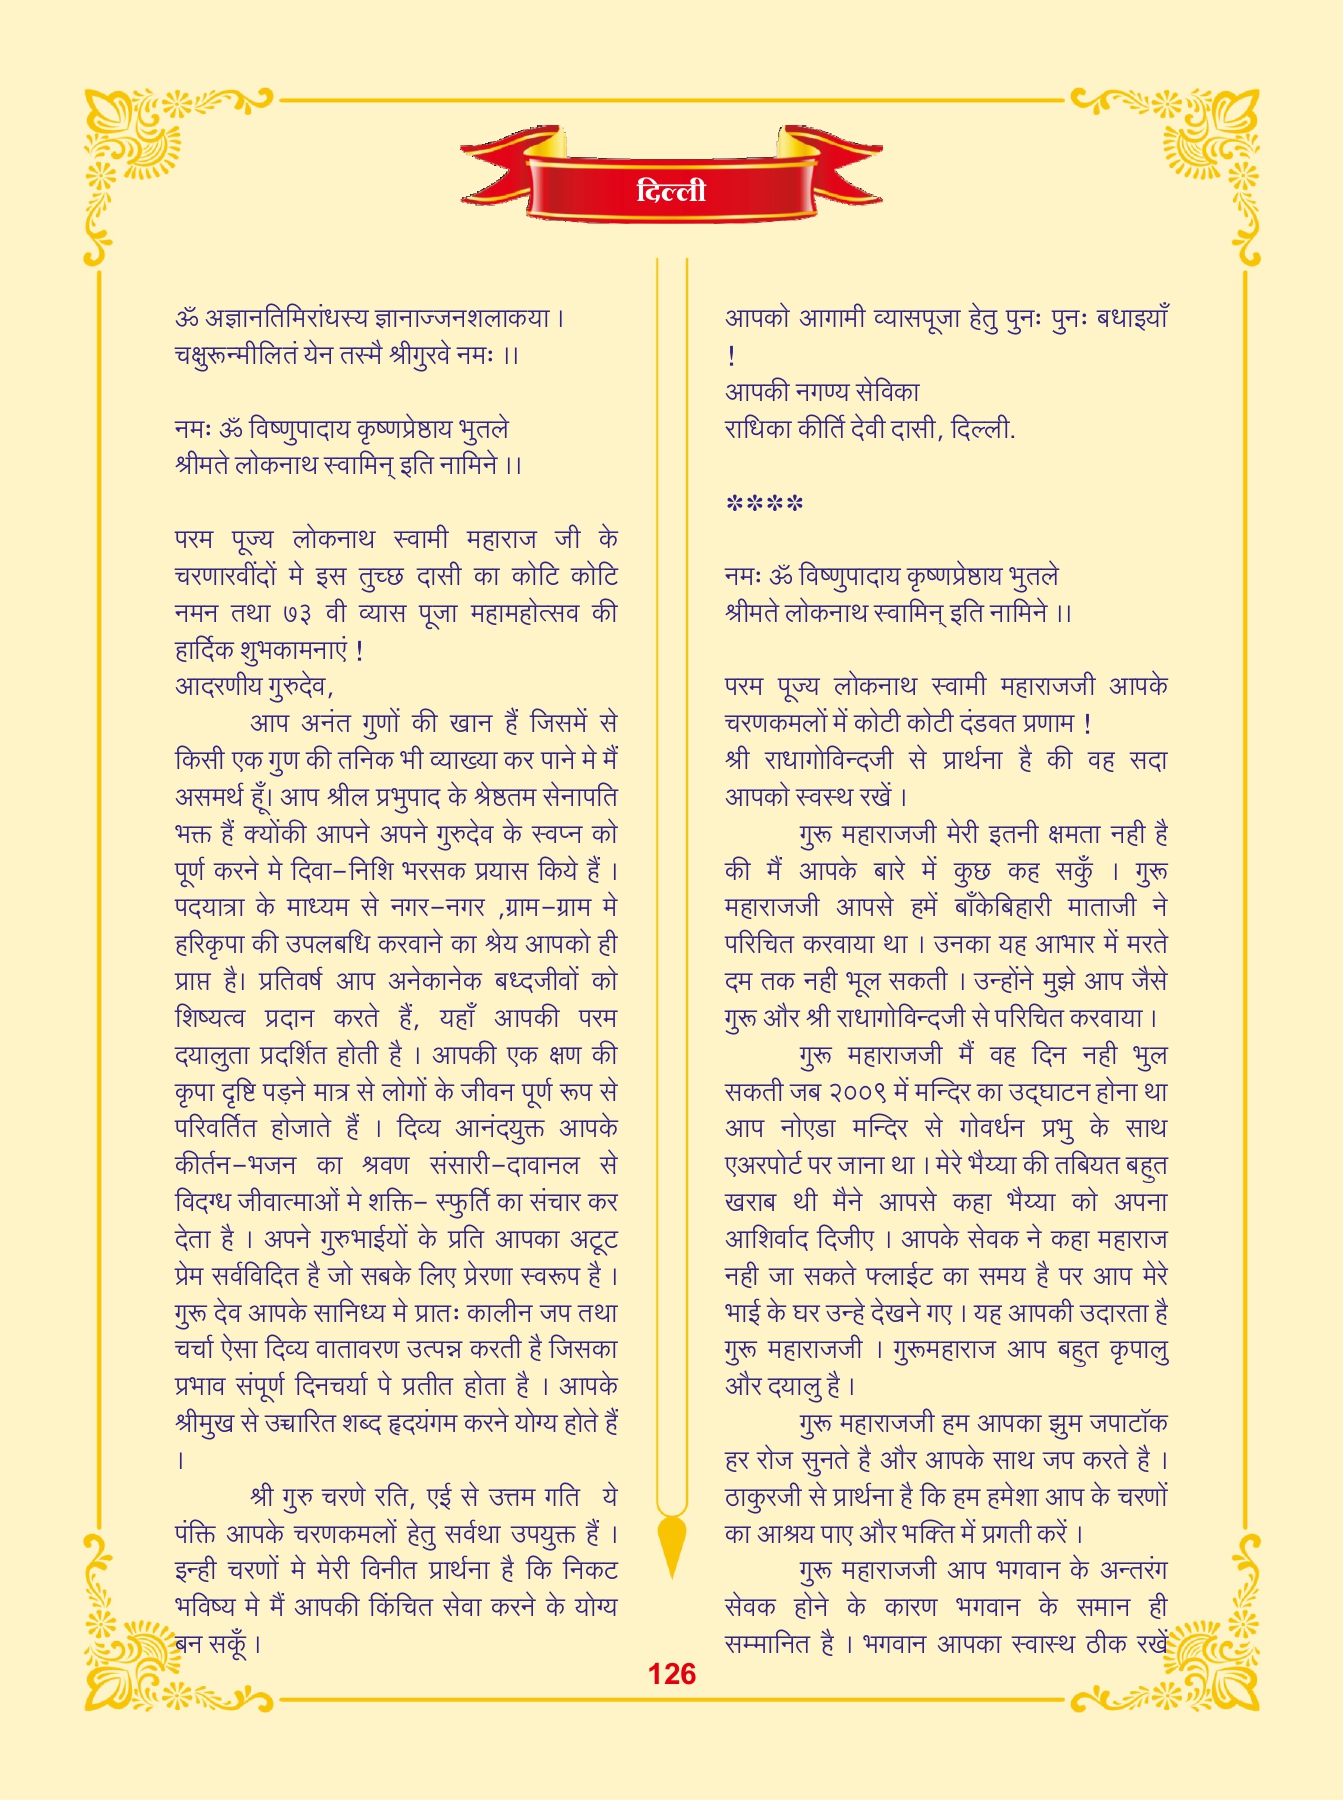 दिल्ली
ॐ अज्ञानतिमिरांधस्य ज्ञानाज्जनशलाकया ।
चक्षुरून्मीलितं येन तस्मै श्रीगुरवे नमः ।।
नमः ॐ विष्णुपादाय कृष्णप्रेष्ठाय भुतले
श्रीमते लोकनाथ स्वामिन् इति नामिने ।।
परम पूज्य लोकनाथ स्वामी महाराज जी के
चरणारवींदों मे इस तुच्छ दासी का कोटि कोटि
नमन तथा ७३ वी व्यास पूजा महामहोत्सव की
हार्दिक शुभकामनाएं !
आदरणीय गुरुदेव,
आप अनंत गुणों की खान हैं जिसमें से
किसी एक गुण की तनिक भी व्याख्या कर पाने मे मैं
असमर्थ हूँ। आप श्रील प्रभुपाद के श्रेष्ठतम सेनापति
भक्त हैं क्योंकी आपने अपने गुरुदेव के स्वप्न को
पूर्ण करने मे दिवा-निशि भरसक प्रयास किये हैं ।
पदयात्रा के माध्यम से नगर-नगर ,ग्राम-ग्राम मे
हरिकृपा की उपलबधि करवाने का श्रेय आपको ही
प्राप्त है। प्रतिवर्ष आप अनेकानेक बध्दजीवों को
शिष्यत्व प्रदान करते हैं, यहाँ आपकी परम
दयालुता प्रदर्शित होती है । आपकी एक क्षण की
कृपा दृष्टि पड़ने मात्र से लोगों के जीवन पूर्ण रूप से
परिवर्तित होजाते हैं । दिव्य आनंदयुक्त आपके
कीर्तन-भजन का श्रवण संसारी-दावानल से
विदग्ध जीवात्माओं मे शक्ति- स्फुर्ति का संचार कर
देता है । अपने गुरुभाईयों के प्रति आपका अटूट
प्रेम सर्वविदित है जो सबके लिए प्रेरणा स्वरूप है ।
गुरू देव आपके सानिध्य मे प्रातः कालीन जप तथा
चर्चा ऐसा दिव्य वातावरण उत्पन्न करती है जिसका
प्रभाव संपूर्ण दिनचर्या पे प्रतीत होता है । आपके
श्रीमुख से उच्चारित शब्द हृदयंगम करने योग्य होते हैं
।
श्री गुरु चरणे रति, एई से उत्तम गति ये
पंक्ति आपके चरणकमलों हेतु सर्वथा उपयुक्त हैं ।
इन्ही चरणों मे मेरी विनीत प्रार्थना है कि निकट
भविष्य मे मैं आपकी किंचित सेवा करने के योग्य
बन सकूँ ।
आपको आगामी व्यासपूजा हेतु पुनः पुनः बधाइयाँ
!
आपकी नगण्य सेविका
राधिका कीर्ति देवी दासी, दिल्ली.
****
नमः ॐ विष्णुपादाय कृष्णप्रेष्ठाय भुतले
श्रीमते लोकनाथ स्वामिन् इति नामिने ।।
परम पूज्य लोकनाथ स्वामी महाराजजी आपके
चरणकमलों में कोटी कोटी दंडवत प्रणाम !
श्री राधागोविन्दजी से प्रार्थना है की वह सदा
आपको स्वस्थ रखें ।
गुरू महाराजजी मेरी इतनी क्षमता नही है
की मैं आपके बारे में कुछ कह सकुँ । गुरू
महाराजजी आपसे हमें बाँकेबिहारी माताजी ने
परिचित करवाया था । उनका यह आभार में मरते
दम तक नही भूल सकती । उन्होंने मुझे आप जैसे
गुरू और श्री राधागोविन्दजी से परिचित करवाया ।
गुरू महाराजजी मैं वह दिन नही भुल
सकती जब २००९ में मन्दिर का उद्घाटन होना था
आप नोएडा मन्दिर से गोवर्धन प्रभु के साथ
एअरपोर्ट पर जाना था । मेरे भैय्या की तबियत बहुत
खराब थी मैने आपसे कहा भैय्या को अपना
आशिर्वाद दिजीए । आपके सेवक ने कहा महाराज
नही जा सकते फ्लाईट का समय है पर आप मेरे
भाई के घर उन्हे देखने गए । यह आपकी उदारता है
गुरू महाराजजी । गुरूमहाराज आप बहुत कृपालु
और दयालु है ।
गुरू महाराजजी हम आपका झुम जपाटॉक
हर रोज सुनते है और आपके साथ जप करते है ।
ठाकुरजी से प्रार्थना है कि हम हमेशा आप के चरणों
का आश्रय पाए और भक्ति में प्रगती करें ।
गुरू महाराजजी आप भगवान के अन्तरंग
सेवक होने के कारण भगवान के समान ही
सम्मानित है । भगवान आपका स्वास्थ ठीक रखें
126